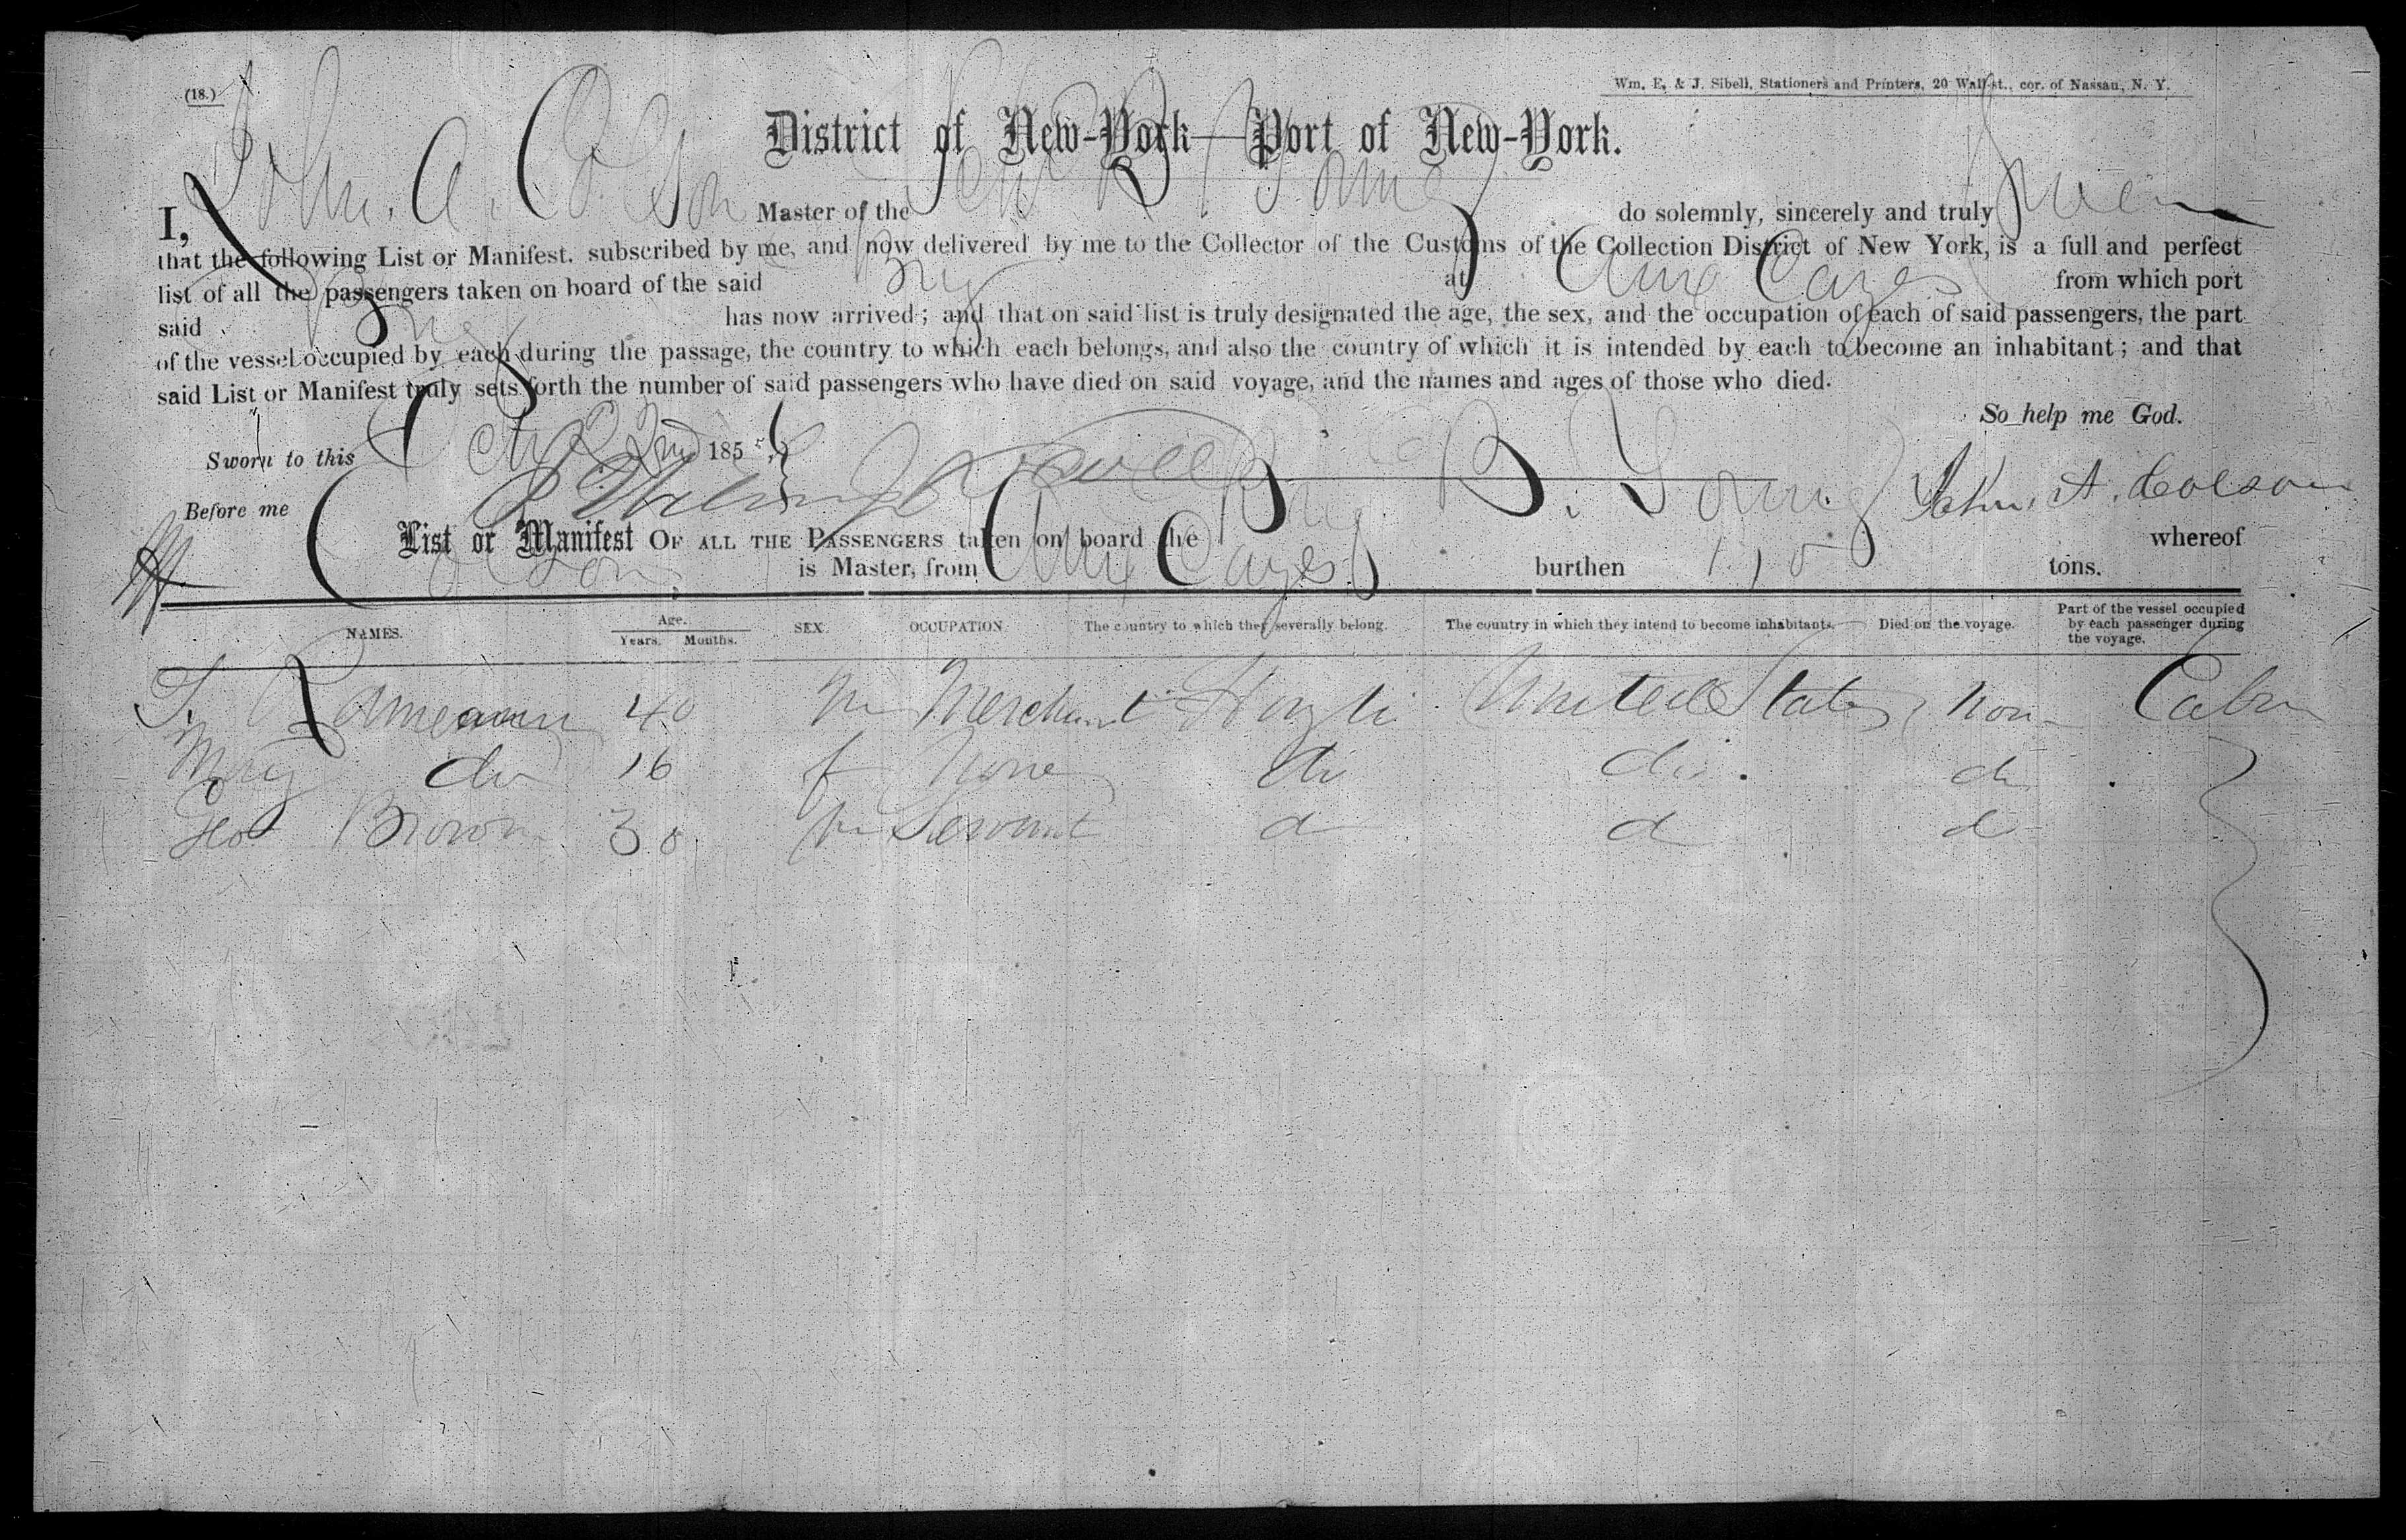 (18.)
Wm. E. & J. Sibell, Stationers and Printers, 20 Wall-st., cor. of Nassau, N. Y.
District of New-York—Port of New-York.
I, John. A. Colson Master of the B. Young do solemnly, sincerely and truly swear
that the following List or Manifest. subscribed by me, and now delivered by me to the Collector of the Customs of the Collection District of New York, is a full and perfect
list of all the passengers taken on board of the said Brig at Aux Cayes from which port
said Brig has now arrived; and that on said list is truly designated the age, the sex, and the occupation of each of said passengers, the part
of the vessel occupied by each during the passage, the country to which each belongs, and also the country of which it is intended by each to become an inhabitant; and that
said List or Manifest truly sets forth the number of said passengers who have died on said voyage, and the names and ages of those who died.
So help me God.
Sworn to this Oct 22nd 185
Before me John. A. Colson
List or Manifest OF ALL THE PASSENGERS taken on board the Brig B. Young whereof
Colson is Master, from Aux Cayes burthen tons.
NAMES. Age. Years. Months. SEX. OCCUPATION. The country to which they severally belong. The country in which they intend to become inhabitants. Died on the voyage. Part of the vessel occupied by each passenger during the voyage.
40 m Merchant Hayti United States Non Cabin
Mary do 16 f None do do. do
Geo Brown 30 m Servant d d d